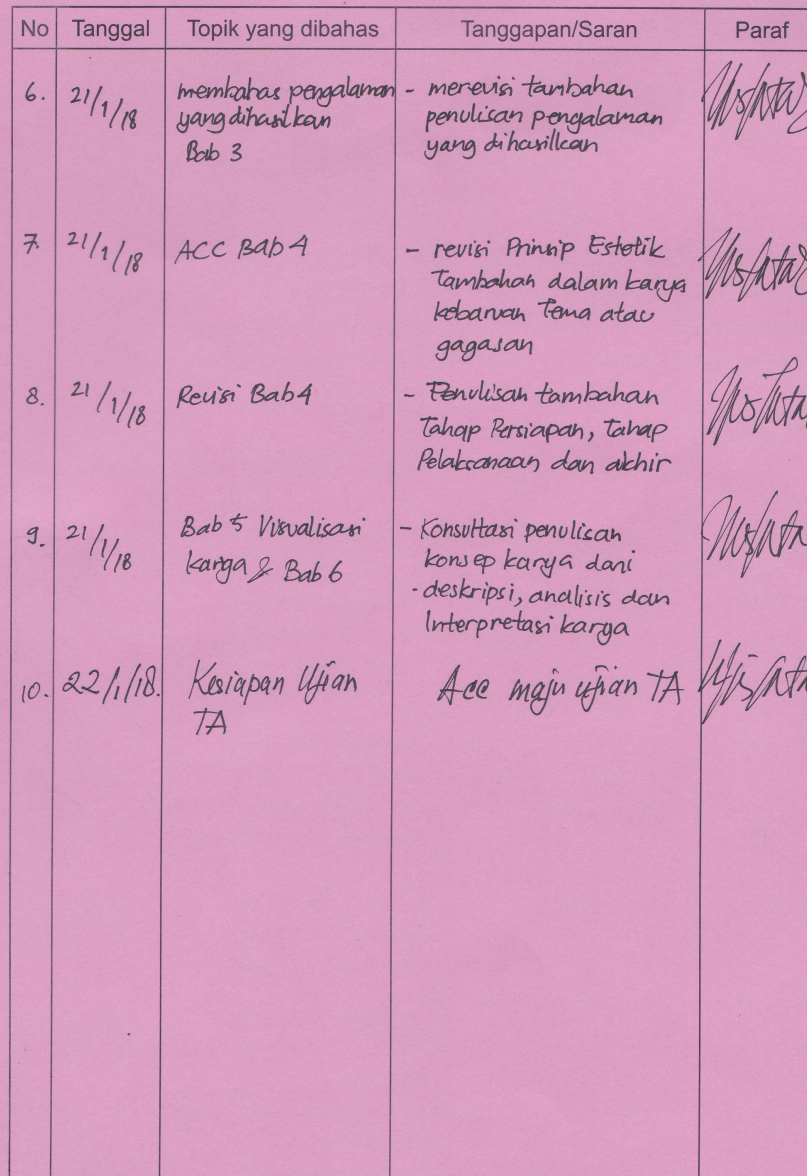 No Tanggal Topik yang dibahas Tanggapan/Saran Paraf
6. 21/1/18 membahas pengalaman - merevisi tambahan
yang dihasilkan penulisan pengalaman
Bab 3 yang dihasilkan
7. 21/1/18 ACC Bab 4 - revisi Prinsip Estetik
Tambahan dalam karya
kebaruan Tema atau
gagasan
8. 21/1/18 Revisi Bab 4 - Penulisan tambahan
Tahap Persiapan, tahap
Pelaksanaan dan akhir
9. 21/1/18 Bab 5 Visualisasi - Konsultasi penulisan
karya & Bab 6 konsep karya dari
- deskripsi, analisis dan
Interpretasi karya
10. 22/1/18. Kesiapan Ujian Acc maju ujian TA
TA